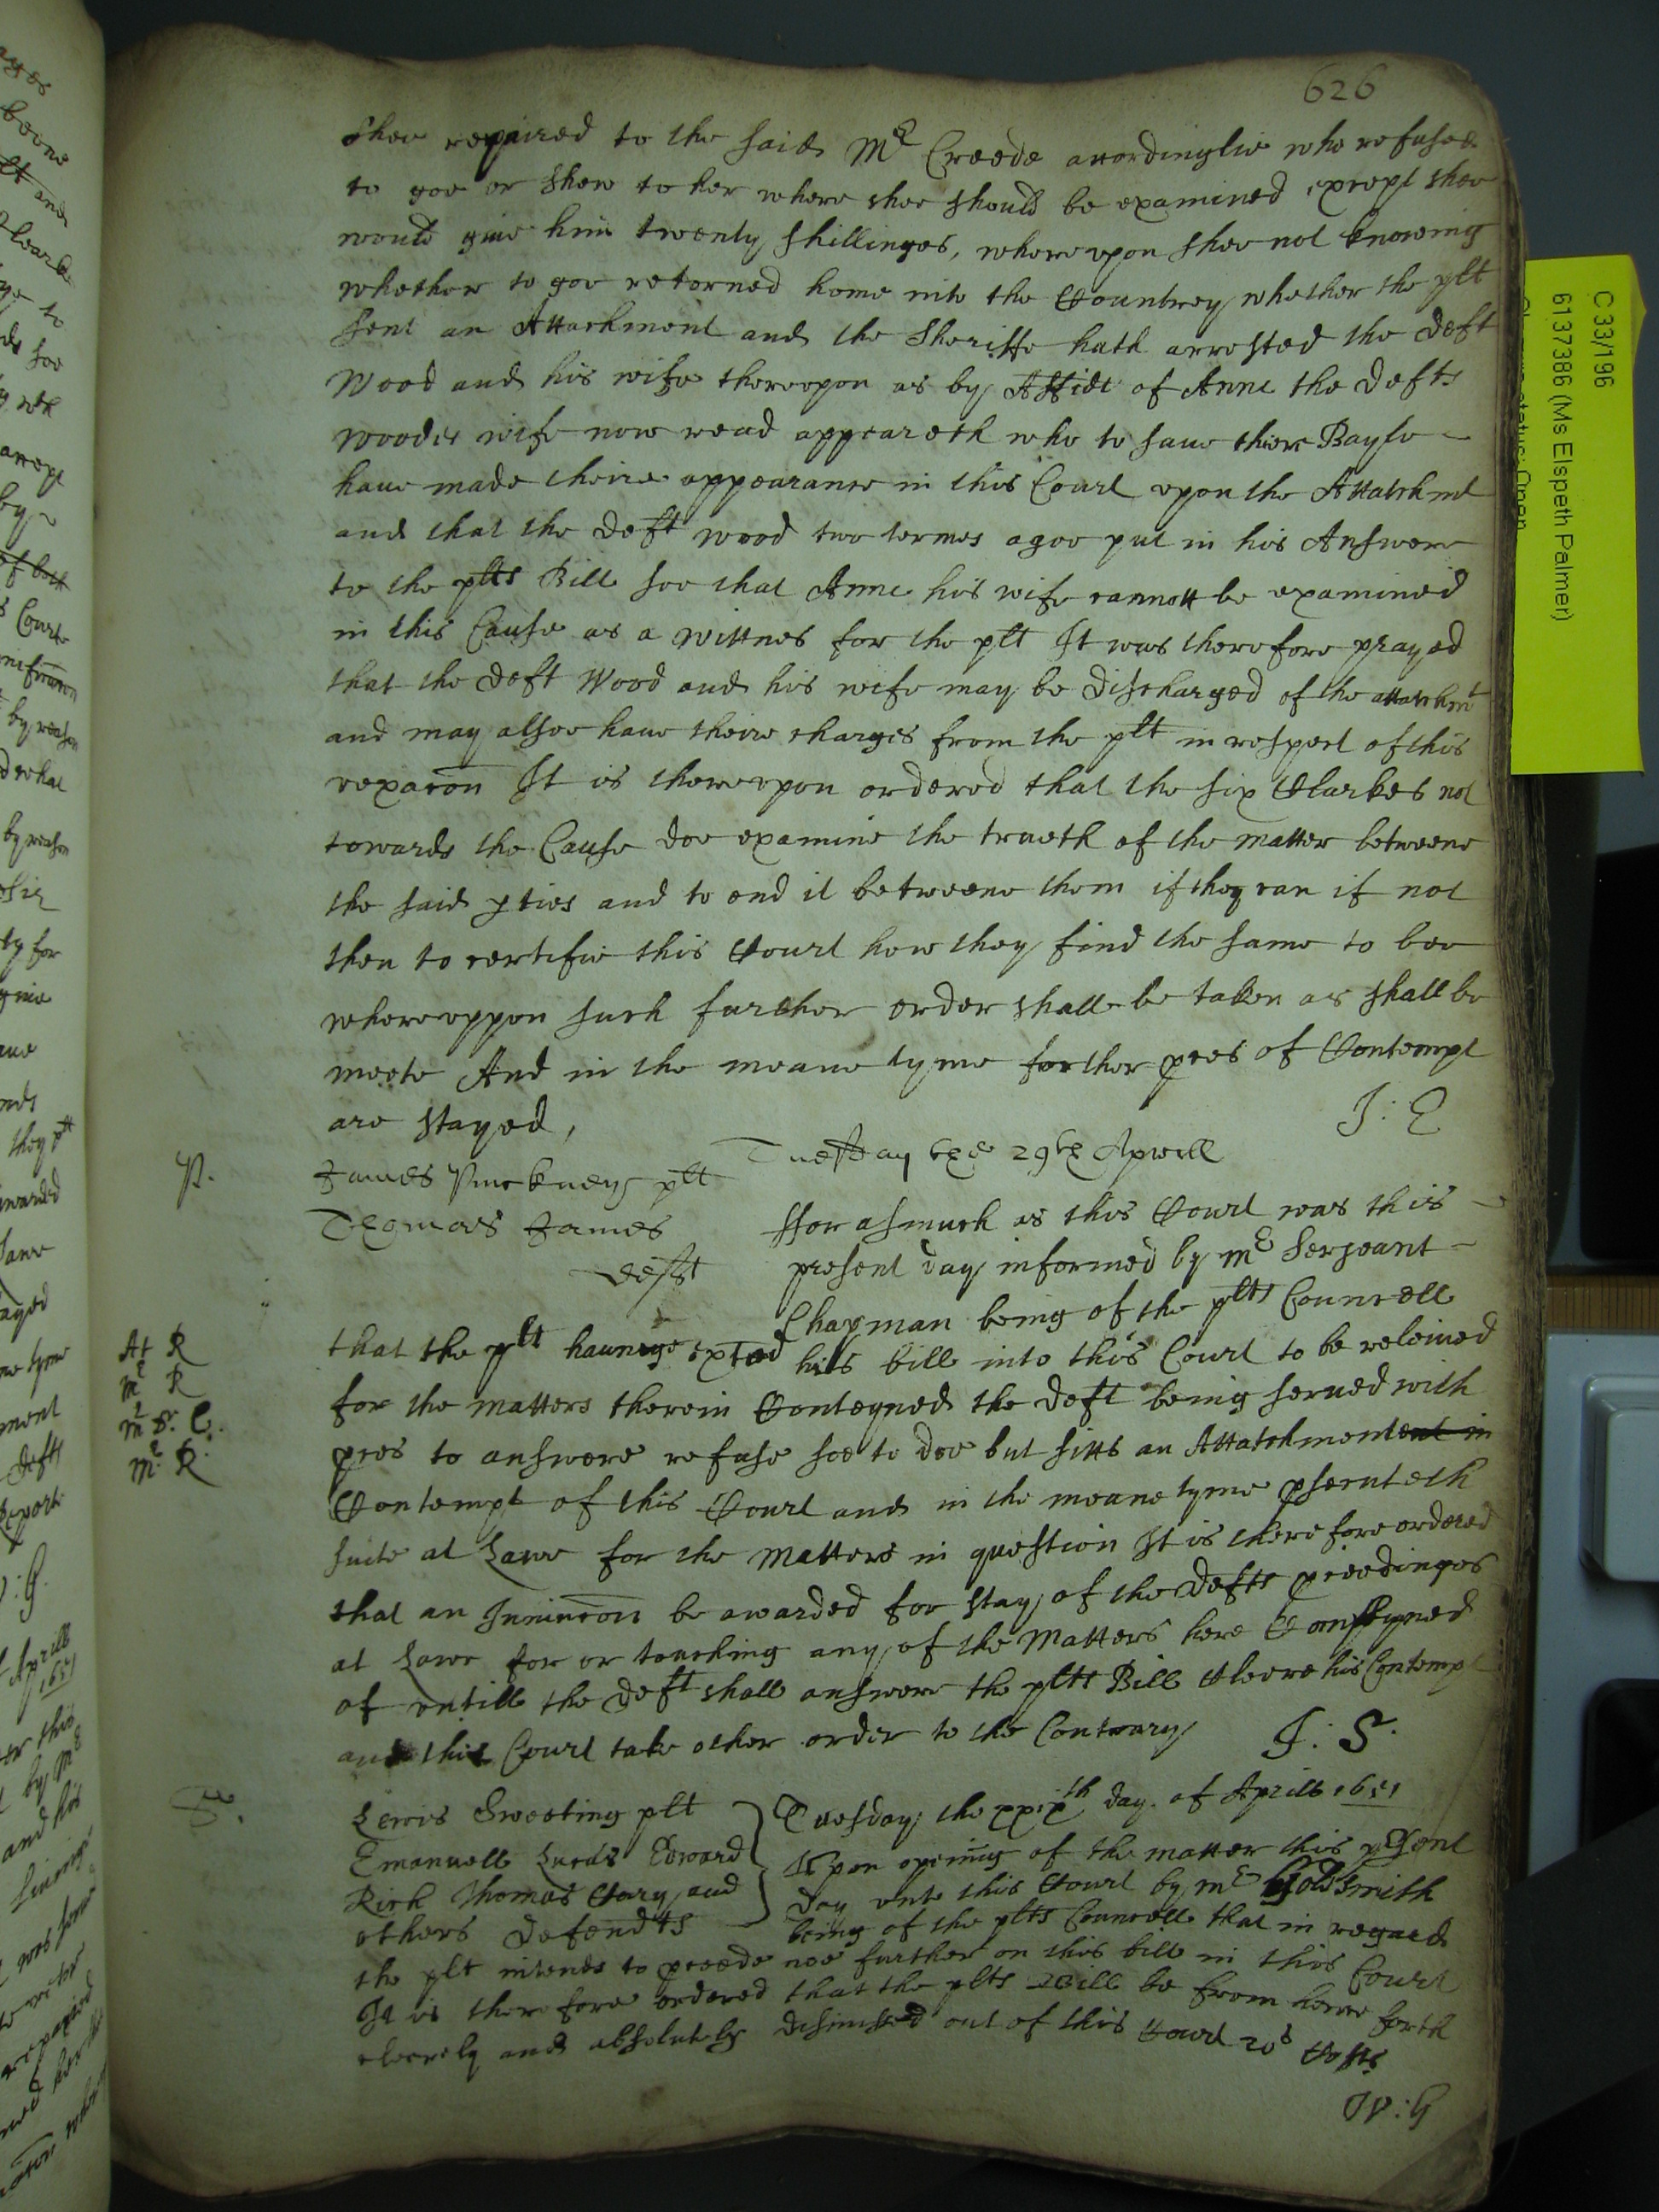 626
shee repaired to the said Mr Creede accordinglie who refused
to goe or shew to her where shee should be examined except shee
would giue him twenty shillinges, wherevpon shee not knowing
whether to goe retorned home into the Countrey whether the plt
sent an Attachment and the Sheriffe hath arrested the deft
Wood and his wife therevpon as by Affidt of Anne the defts
Woodes wife now read appeareth who to saue theire Bayle
haue made theire appearance in this Court vpon the Attachmt
and that the deft Wood two termes agoe put in his Answere
to the plts Bill soe that Anne his wife cannott be examined
in this Cause as a wittnes for the plt It was therefore prayed
that the deft Wood and his wife may be discharged of the attachmt
and may alsoe haue theire charges from the plt in respect of this
vexacon It is therevpon ordered that the six Clarkes not
towards the Cause doe examine the trueth of the matter betweene
the said pties and to end it betweene them if they can if not
then to certifie this Court how they find the same to bee
wherevppon such further order shall be taken as shall be
meete And in the meane tyme further pces of Contempt
are stayed,
J: E
P.
Tuesday the 29th Aprill
James Pinckney plt
Thomas James
deft
fforasmuch as this Court was this
present day informed by Mr Serjeant
Chapman being of the plts Councell
that the plt haueinge exted his bill into this Court to be releiued
for the matters therein Conteyned the deft being serued with
pces to answere refuse soe to doe but sitts an Attatchment in
Contempt of this Court and in the meane tyme psecuteth
suite at Lawe for the matters in question It is therefore ordered
that an Iniuncon be awarded for stay of the defts pceedinges
at Lawe for or touching any of the Matters here Complyned
of vntill the deft shall answere the plts Bill Cleere his Contempt
and this Court take other order to the Contrary
J: S.
At R
Mr R
Mr S: C.
Mr: R
Lewis Sweeting plt
Emanuell Lucas Edward
Rich Thomas Cary and
others defendts
Tuesday the xxixth day of Aprill 1651
Vpon opening of the matter this psent
day vnto this Court by Mr Goldsmith
being of the plts Councell that in regard
the plt intends to pceede noe further on this bill in this Court
It is therefore ordered that the plts Bill be from hence forth
cleerely and absolutely dismissed out of this Court 20s Costs
W: G
C 33/196
6137386 (Ms Elspeth Palmer)